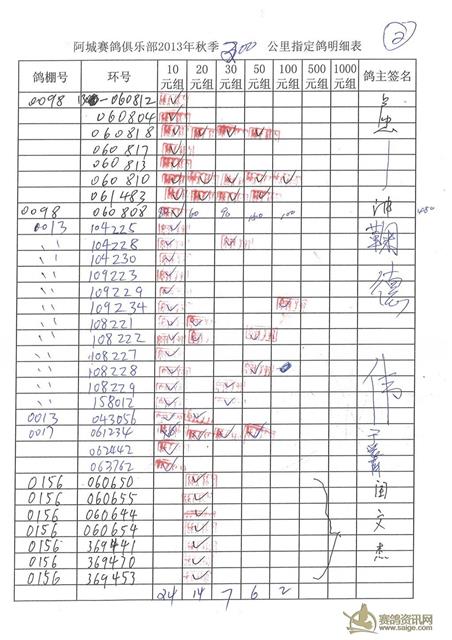 阿城赛鸽俱乐部2013年秋季300公里指定鸽明细表 ②
鸽棚号 环号 10元组 20元组 30元组 50元组 100元组 500元组 1000元组 鸽主签名
0098 060812
060804
060818
060817
060813
060810
061483
0098 060808 80 60 90 150 100 480
0013 104225
〃 104228
〃 104230
〃 109223
〃 109229
〃 109234
〃 108221
〃 108222
〃 108227
〃 108228
〃 108229
〃 158012
0013 043056
0017 061234
062442
063762
0156 060650
0156 060655
0156 060644
0156 060654
0156 369441
0156 369470
0156 369453
鞠德伟
闫文杰
24 14 7 6 2
赛鸽资讯网
www.saige.com